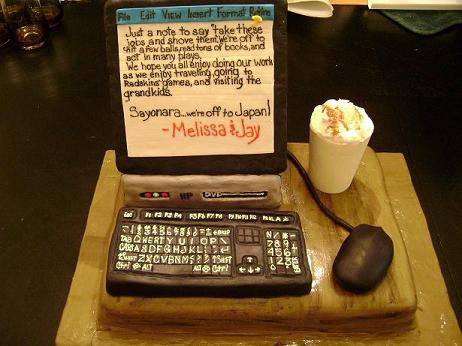 File Edit View Insert Format Retire
Just a note to say "take these
jobs and shove them, we're off to
hit a few balls, read tons of books, and
act in many plays.
We hope you all enjoy doing our work
as we enjoy traveling, going to
Redskins' games, and visiting the
grandkids.
Sayonara... we're off to Japan!
-Melissa & Jay
HP DVD
Esc F1 F2 F3 F4 F5 F6 F7 F8 F9 F10 F11 F12
TAB QWERTYUIOP
CAPS ASDFGHJKL
SHIFT ZXCVBNM SHIFT
Ctrl ALT ALT Ctrl